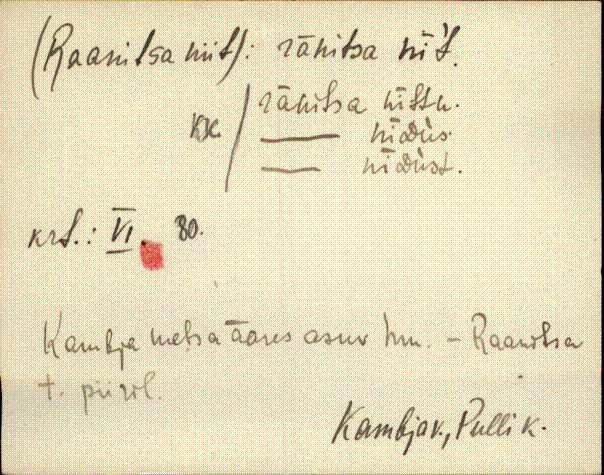 (Raanitsa niit): rānitsa nīt.
rānitsa nīttu.
kx. ——— nīdüs.
——— nīdüst.
krt.: VI. 80.
Kambja metsa ääres asuv hm. – Raanitsa
t. piiril.
Kambja v., Pulli k.